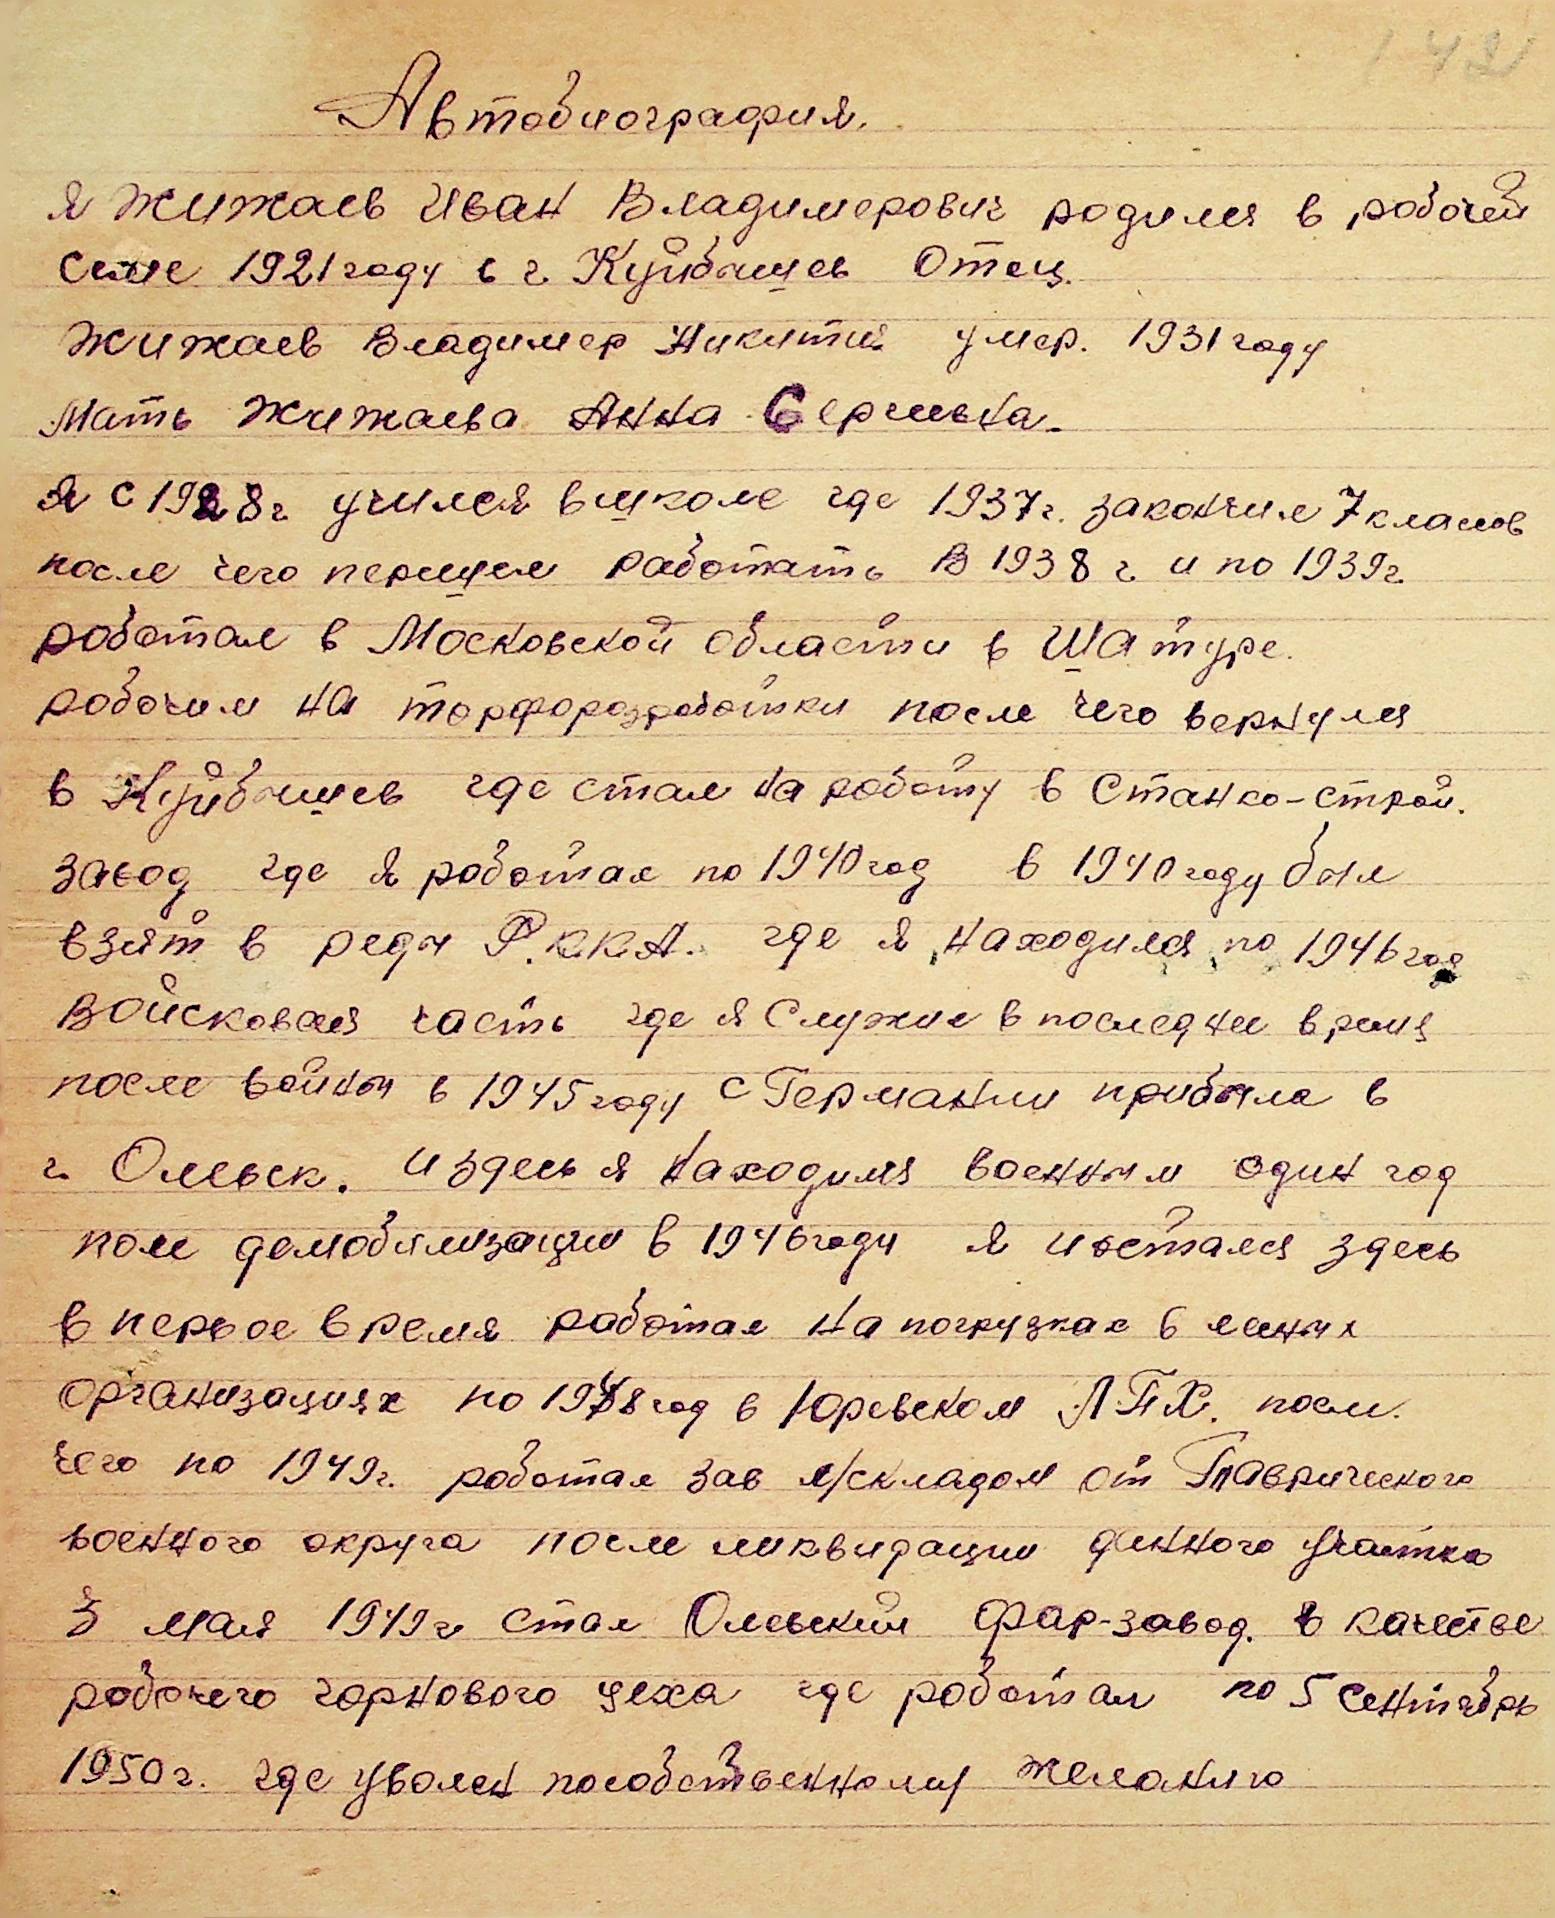 142
Автобиография.
Я Жижаев Иван Владимерович родился в робочей
семе 1921 году в г. Куйбышев Отец.
Жижаев Владимер Никитич умер. 1931 году
Мать Жижаева Анна Сергивна.
Я с 1928 г учился в школе где 1937 г. закончил 7 класов
после чего перишел работать В 1938 г. и по 1939 г.
роботал в Московской области в Шатуре.
робочим на торфорозроботки после чего вернулся
в Куйбышев где стал на роботу в Станко-строй.
завод где я роботал по 1940 год в 1940 году был
взят в реды Р.К.К.А. где я находился по 1946 год
Войсковая часть где я служил в последние время
после войны в 1945 году с Германии прибыла в
г. Олевск. и здесь я находился военным один год
посе демобилизации в 1946 году я и остался здесь
в первое время работал на погрузках в лесных
организациях по 1948 год в Юревском Л.П.Х. посли.
чего по 1949 г. роботал зав л/складом от Таврического
военного округа после ликвидации данного участка
3 мая 1949 г стал Олевский Фар-завод. в качестве
робочего горнового цеха где роботал по 5 сентябрь
1950 г. где уволен пособственному желанию